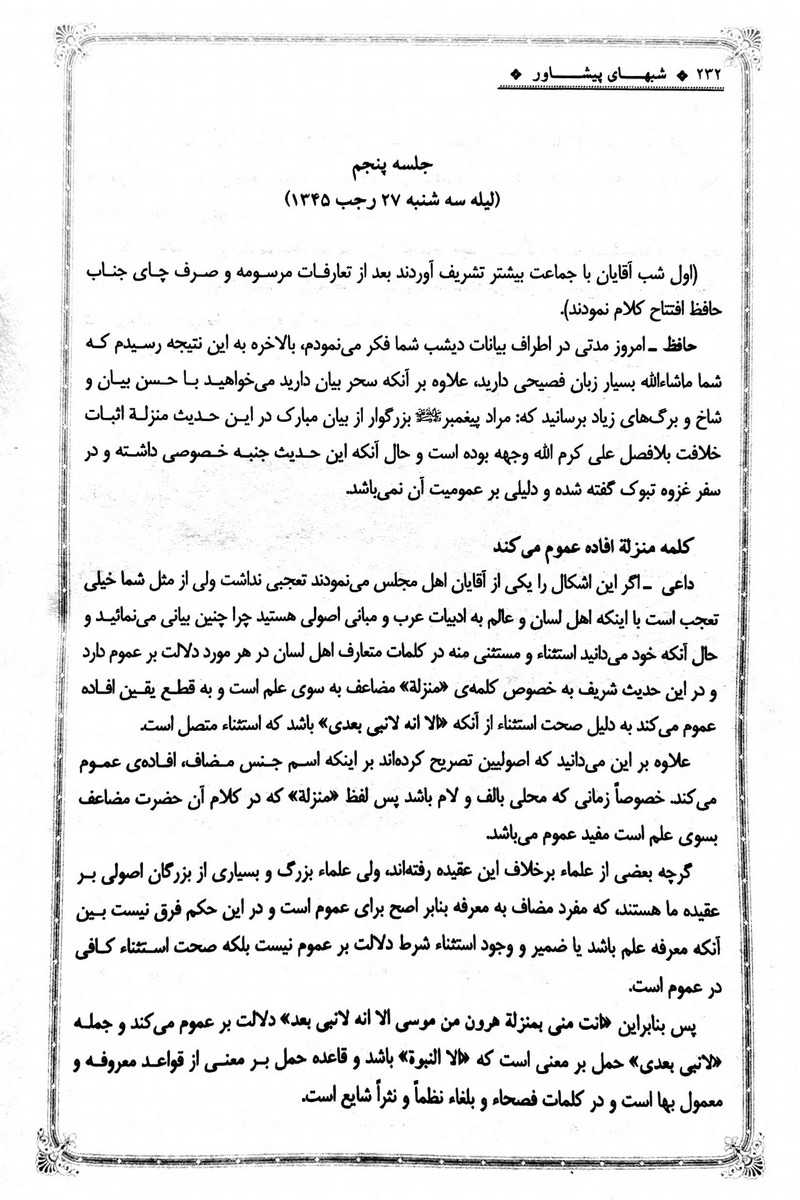 ۲۳۲ ❖ شبهــای پیشـــاور ❖
جلسه پنجم
(لیله سه شنبه ۲۷ رجب ۱۳۴۵)
(اول شب آقایان با جماعت بیشتر تشریف آوردند بعد از تعارفات مرسومه و صرف چای جناب
حافظ افتتاح کلام نمودند).
حافظ ـ امروز مدتی در اطراف بیانات دیشب شما فکر می‌نمودم، بالاخره به این نتیجه رسیدم که
شما ماشاءالله بسیار زبان فصیحی دارید، علاوه بر آنکه سحر بیان دارید می‌خواهید با حسن بیان و
شاخ و برگ‌های زیاد برسانید که: مراد پیغمبرﷺ بزرگوار از بیان مبارک در این حدیث منزلة اثبات
خلافت بلافصل علی کرم الله وجهه بوده است و حال آنکه این حدیث جنبه خصوصی داشته و در
سفر غزوه تبوک گفته شده و دلیلی بر عمومیت آن نمی‌باشد.
کلمه منزلة افاده عموم می‌کند
داعی ـ اگر این اشکال را یکی از آقایان اهل مجلس می‌نمودند تعجبی نداشت ولی از مثل شما خیلی
تعجب است با اینکه اهل لسان و عالم به ادبیات عرب و مبانی اصولی هستید چرا چنین بیانی می‌نمائید و
حال آنکه خود می‌دانید استثناء و مستثنی منه در کلمات متعارف اهل لسان در هر مورد دلالت بر عموم دارد
و در این حدیث شریف به خصوص کلمه‌ی «منزلة» مضاعف به سوی علم است و به قطع یقین افاده
عموم می‌کند به دلیل صحت استثناء از آنکه «الا انه لانبی بعدی» باشد که استثناء متصل است.
علاوه بر این می‌دانید که اصولیین تصریح کرده‌اند بر اینکه اسم جنس مضاف، افاده‌ی عموم
می‌کند. خصوصاً زمانی که محلی بالف و لام باشد پس لفظ «منزلة» که در کلام آن حضرت مضاعف
بسوی علم است مفید عموم می‌باشد.
گرچه بعضی از علماء برخلاف این عقیده رفته‌اند، ولی علماء بزرگ و بسیاری از بزرگان اصولی بر
عقیده ما هستند، که مفرد مضاف به معرفه بنابر اصح برای عموم است و در این حکم فرق نیست بین
آنکه معرفه علم باشد یا ضمیر و وجود استثناء شرط دلالت بر عموم نیست بلکه صحت استثناء کافی
در عموم است.
پس بنابراین «انت منی بمنزلة هرون من موسی الا انه لانبی بعد» دلالت بر عموم می‌کند و جمله
«لانبی بعدی» حمل بر معنی است که «الا النبوة» باشد و قاعده حمل بر معنی از قواعد معروفه و
معمول بها است و در کلمات فصحاء و بلغاء نظماً و نثراً شایع است.